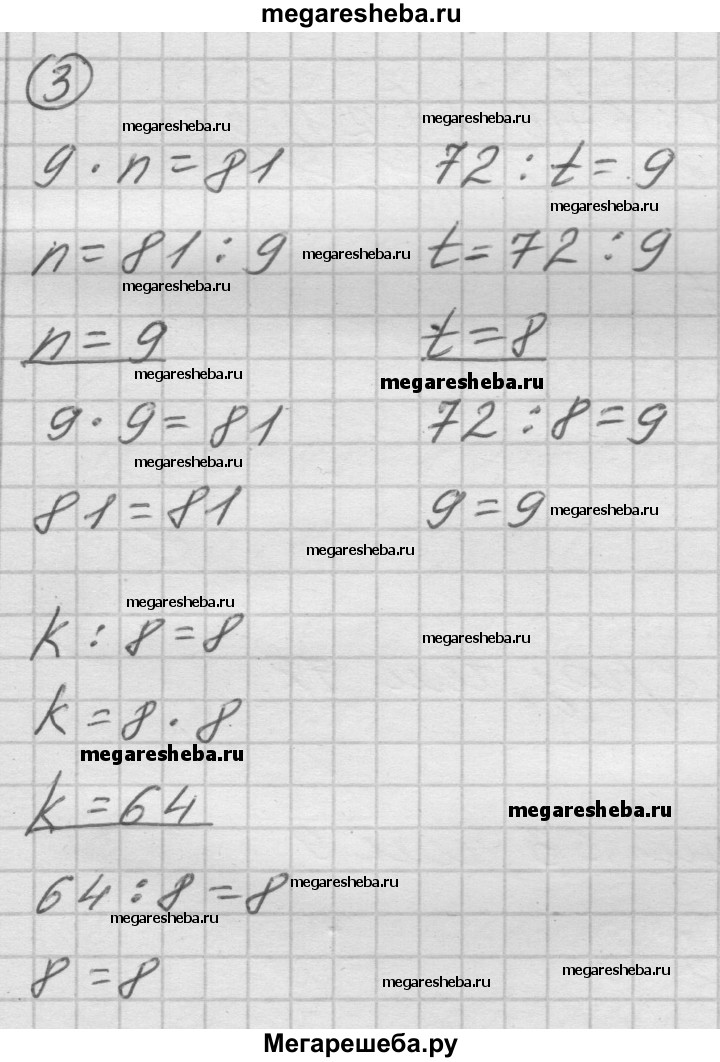 megaresheba.ru
3
megaresheba.ru
megaresheba.ru
9 · n = 81
72 : t = 9
megaresheba.ru
n = 81 : 9
megaresheba.ru
t = 72 : 9
megaresheba.ru
n = 9
t = 8
megaresheba.ru
megaresheba.ru
9 · 9 = 81
72 : 8 = 9
megaresheba.ru
81 = 81
9 = 9
megaresheba.ru
megaresheba.ru
megaresheba.ru
k : 8 = 8
megaresheba.ru
k = 8 · 8
megaresheba.ru
k = 64
megaresheba.ru
64 : 8 = 8
megaresheba.ru
megaresheba.ru
8 = 8
megaresheba.ru
megaresheba.ru
Мегарешеба.ру